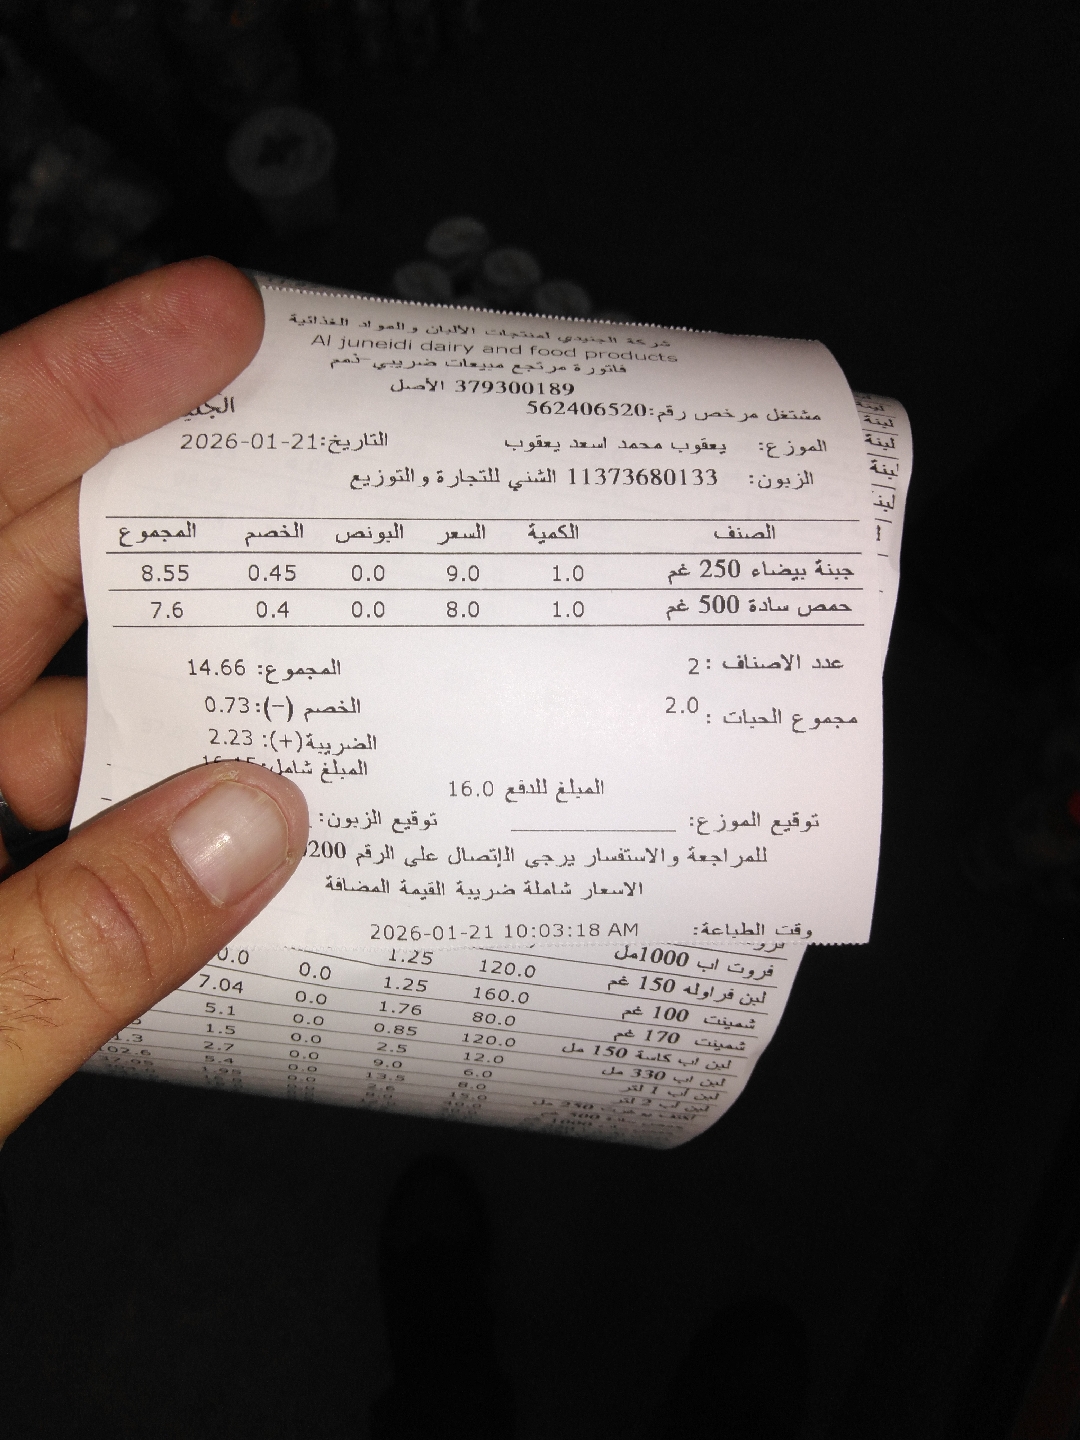 شركة الجنيدي لمنتجات الألبان والمواد الغذائية
Al juneidi dairy and food products
فاتورة مرتجع مبيعات ضريبي-ذمم
379300189 الأصل
مشتغل مرخص رقم:562406520
الموزع: يعقوب محمد اسعد يعقوب التاريخ:2026-01-21
الزبون: 11373680133 الشني للتجارة والتوزيع
الصنف الكمية السعر البونص الخصم المجموع
جبنة بيضاء 250 غم 1.0 9.0 0.0 0.45 8.55
حمص سادة 500 غم 1.0 8.0 0.0 0.4 7.6
عدد الاصناف : 2 المجموع: 14.66
مجموع الحبات : 2.0 الخصم (-):0.73
الضريبة(+): 2.23
المبلغ شامل:
المبلغ للدفع 16.0
توقيع الموزع: توقيع الزبون:
للمراجعة والاستفسار يرجى الإتصال على الرقم
الاسعار شاملة ضريبة القيمة المضافة
وقت الطباعة: 2026-01-21 10:03:18 AM
فروت اب 1000مل 120.0 1.25 0.0
لبن فراوله 150 غم 160.0 1.25 0.0
شمينت 100 غم 80.0 1.76 0.0 7.04
شمينت 170 غم 120.0 0.85 0.0 5.1
لبن اب كاسة 150 مل 12.0 2.5 0.0 1.5
لبن اب 330 مل 6.0 9.0 0.0 2.7
لبن اب 1 لتر 8.0 13.5 0.0 5.4
لبن اب 2 لتر